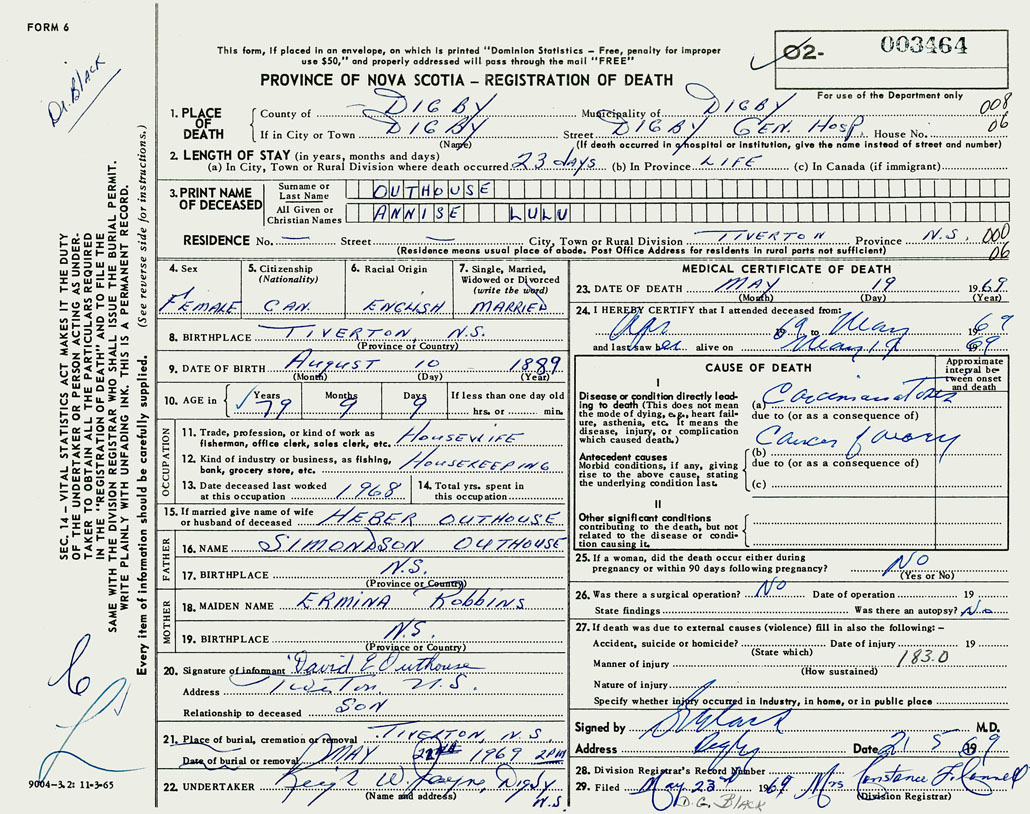 FORM 6
Dr. Black
This form, if placed in an envelope, on which is printed "Dominion Statistics – Free, penalty for improper
use $50," and properly addressed will pass through the mail "FREE"
PROVINCE OF NOVA SCOTIA – REGISTRATION OF DEATH
02- 003464
For use of the Department only
1. PLACE OF DEATH
County of DIGBY Municipality of DIGBY 008
If in City or Town DIGBY Street DIGBY GEN. HOSP. House No. 06
(Name) (If death occurred in a hospital or institution, give the name instead of street and number)
2. LENGTH OF STAY (in years, months and days)
(a) In City, Town or Rural Division where death occurred 23 days (b) In Province LIFE (c) In Canada (if immigrant)
3. PRINT NAME OF DECEASED
Surname or Last Name OUTHOUSE
All Given or Christian Names ANNISE LULU
RESIDENCE No. — Street — City, Town or Rural Division TIVERTON Province N.S. 000
(Residence means usual place of abode. Post Office Address for residents in rural parts not sufficient) 06
4. Sex FEMALE
5. Citizenship (Nationality) CAN.
6. Racial Origin ENGLISH
7. Single, Married, Widowed or Divorced (write the word) MARRIED
8. BIRTHPLACE TIVERTON, N.S.
(Province or Country)
9. DATE OF BIRTH AUGUST 10 1889
(Month) (Day) (Year)
10. AGE in Years 79 Months 9 Days 9 If less than one day old hrs. or min.
OCCUPATION
11. Trade, profession, or kind of work as fisherman, office clerk, sales clerk, etc. HOUSEWIFE
12. Kind of industry or business, as fishing, bank, grocery store, etc. HOUSEKEEPING
13. Date deceased last worked at this occupation 1968
14. Total yrs. spent in this occupation
15. If married give name of wife or husband of deceased HEBER OUTHOUSE
FATHER
16. NAME SIMONDSON OUTHOUSE
17. BIRTHPLACE N.S.
(Province or Country)
MOTHER
18. MAIDEN NAME ERMINA ROBBINS
19. BIRTHPLACE N.S.
(Province or Country)
20. Signature of informant David E Outhouse
Address Tiverton, N.S.
Relationship to deceased SON
21. Place of burial, cremation or removal TIVERTON N.S.
Date of burial or removal MAY 22nd 1969 2PM
22. UNDERTAKER W. Jayne, Digby
N.S.
(Name and address)
MEDICAL CERTIFICATE OF DEATH
23. DATE OF DEATH MAY 19 1969
(Month) (Day) (Year)
24. I HEREBY CERTIFY that I attended deceased from:
Apr 69 to May 1969
and last saw her alive on May 19 1969
CAUSE OF DEATH
Approximate interval between onset and death
I
Disease or condition directly leading to death (This does not mean the mode of dying, e.g., heart failure, asthenia, etc. It means the disease, injury, or complication which caused death.)
(a) Carcinomatosis
due to (or as a consequence of)
Antecedent causes
Morbid conditions, if any, giving rise to the above cause, stating the underlying condition last.
(b) Cancer of ovary
due to (or as a consequence of)
(c)
II
Other significant conditions
contributing to the death, but not related to the disease or condition causing it.
25. If a woman, did the death occur either during pregnancy or within 90 days following pregnancy? NO
(Yes or No)
26. Was there a surgical operation? NO Date of operation 19
State findings Was there an autopsy? No
27. If death was due to external causes (violence) fill in also the following: –
Accident, suicide or homicide? Date of injury 19
(State which)
Manner of injury 183.0
(How sustained)
Nature of injury
Specify whether injury occurred in Industry, in home, or in public place
Signed by Black M.D.
Address Digby Date 21 5 1969
28. Division Registrar's Record Number
29. Filed May 23rd 1969 Mrs Constance
D.G. BLACK
(Division Registrar)
SEC. 14 – VITAL STATISTICS ACT MAKES IT THE DUTY
OF THE UNDERTAKER OR PERSON ACTING AS UNDER-
TAKER TO OBTAIN ALL THE PARTICULARS REQUIRED
IN THE "REGISTRATION OF DEATH" AND TO FILE THE
SAME WITH THE DIVISION REGISTRAR WHO SHALL ISSUE THE BURIAL PERMIT.
WRITE PLAINLY WITH UNFADING INK. THIS IS A PERMANENT RECORD.
Every item of information should be carefully supplied. (See reverse side for instructions.)
9004–3.2: 11-3-65